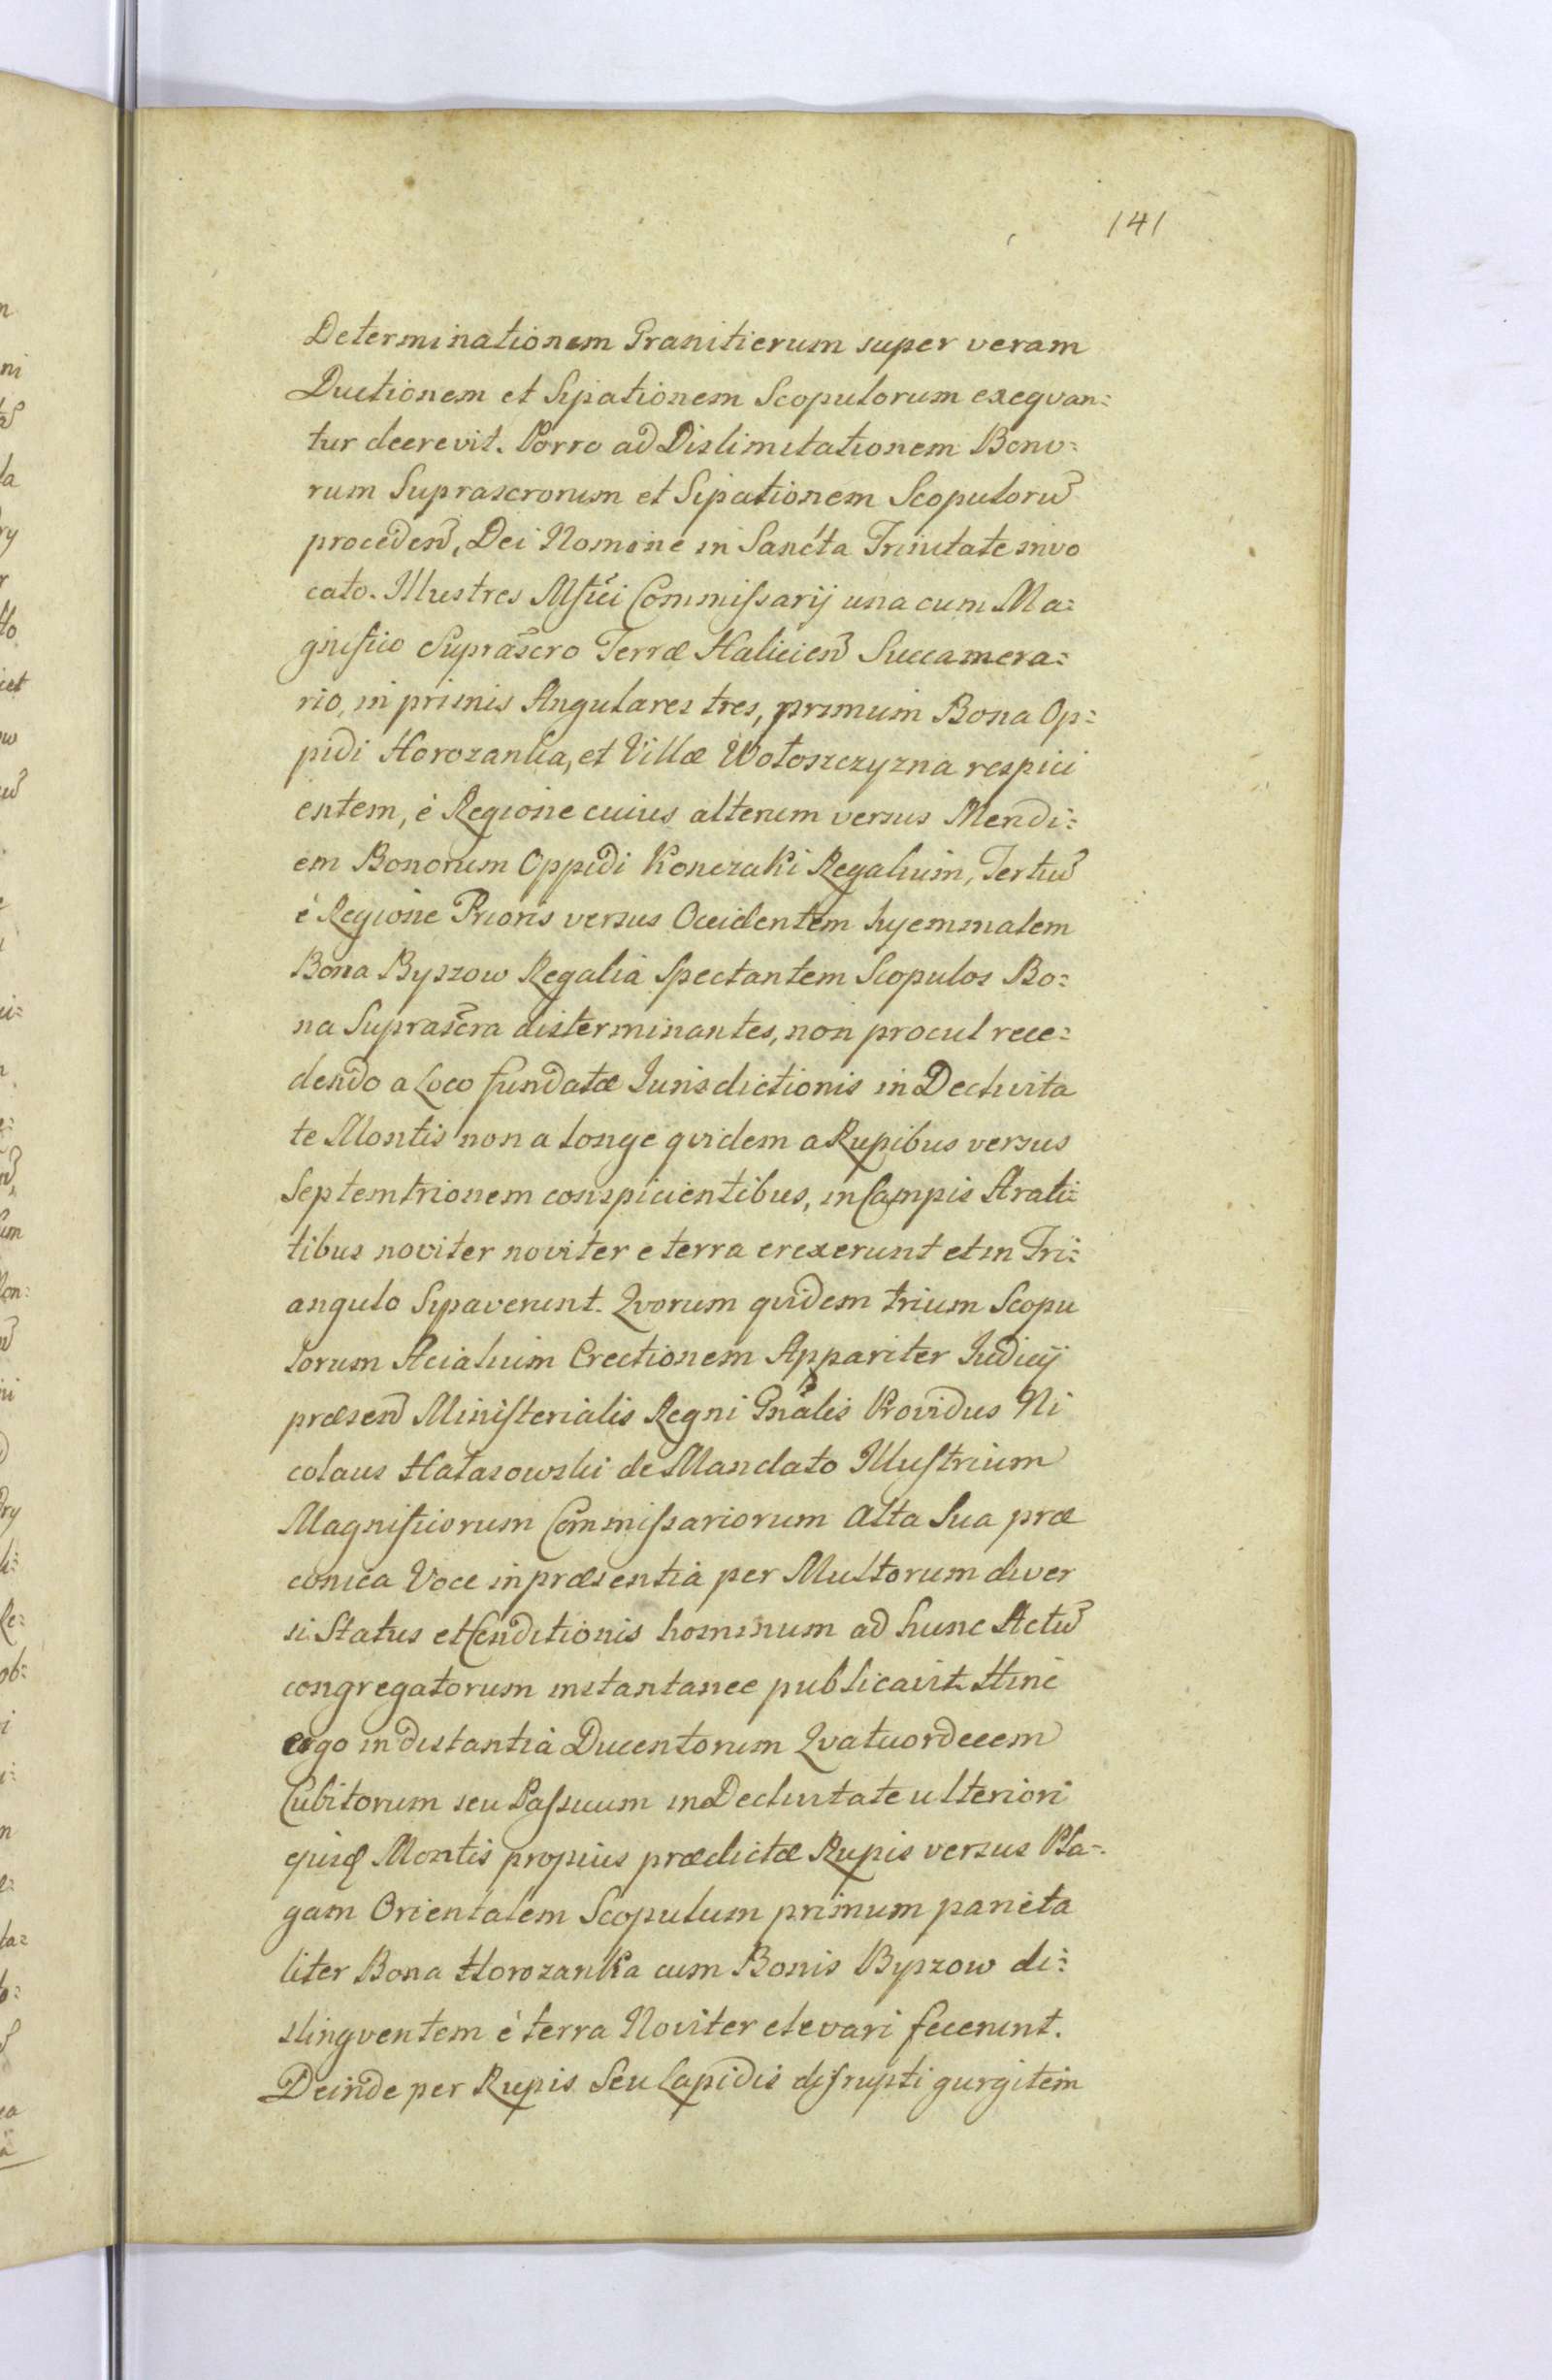 141
Determinationem Granitierum super veram
Ductionem et Sypationem Scopulorum exeqvan:
tur decrevit. Porro ad Dislimitationem Bono:
rum Suprascrorum et Sipationem Scopuloru᷉
proceden᷉, Dei Nomine in Sancta Trinitate invo
cato. Illustres Mfici Commiſsarij una cum Ma:
gnifico Supra᷉scro Terræ Halicien᷉ Succamera:
rio, in primis Angulares tres, primum Bona Op:
pidi Horozanka, et Villæ Wołoszczyzna respici
entem, è Regione cuius alterum versus Meridi:
em Bonorum Oppidi Konczaki Regalium, Tertiu᷉
è Regione Prioris versus Occidentem hyemmalem
Bona Byszow Regalia Spectantem Scopulos Bo:
na Supras᷉cra disterminantes, non procul rece:
dendo a Loco fundatæ Jurisdictionis in Declivita
te Montis non a longe qvidem a Rupibus versus
Septemtrionem conspicientibus, in Campis Arati:
tibus noviter noviter e terra erexerunt et in Tri:
angulo Sypaverunt. Qvorum qvidem trium Scopu
lorum Acialium Erectionem Appariter Judicij
præsen᷉ Ministerialis Regni Gn᷉alis Providus Ni
colaus Hałasowski de Mandato Illustrium
Magnificorum Commiſsariorum Alta Sua præ
conica Voce in præsentia per Multorum diver
si Status et Conditionis hominum ad hunc Actu᷉
congregatorum instantanee publicavit. Hinc
ergo in distantia Ducentorum Qvatuordecem
Cubitorum seu Paſsuum in Declivitate ulteriori
ejusq Montis propius prædictæ Rupis versus Pla:
gam Orientalem Scopulum primum parieta
liter Bona Horozanka cum Bonis Byszow di:
stingventem è terra Noviter elevari fecerunt.
Deinde per Rupis Seu Lapidis diſrupti gurgitem